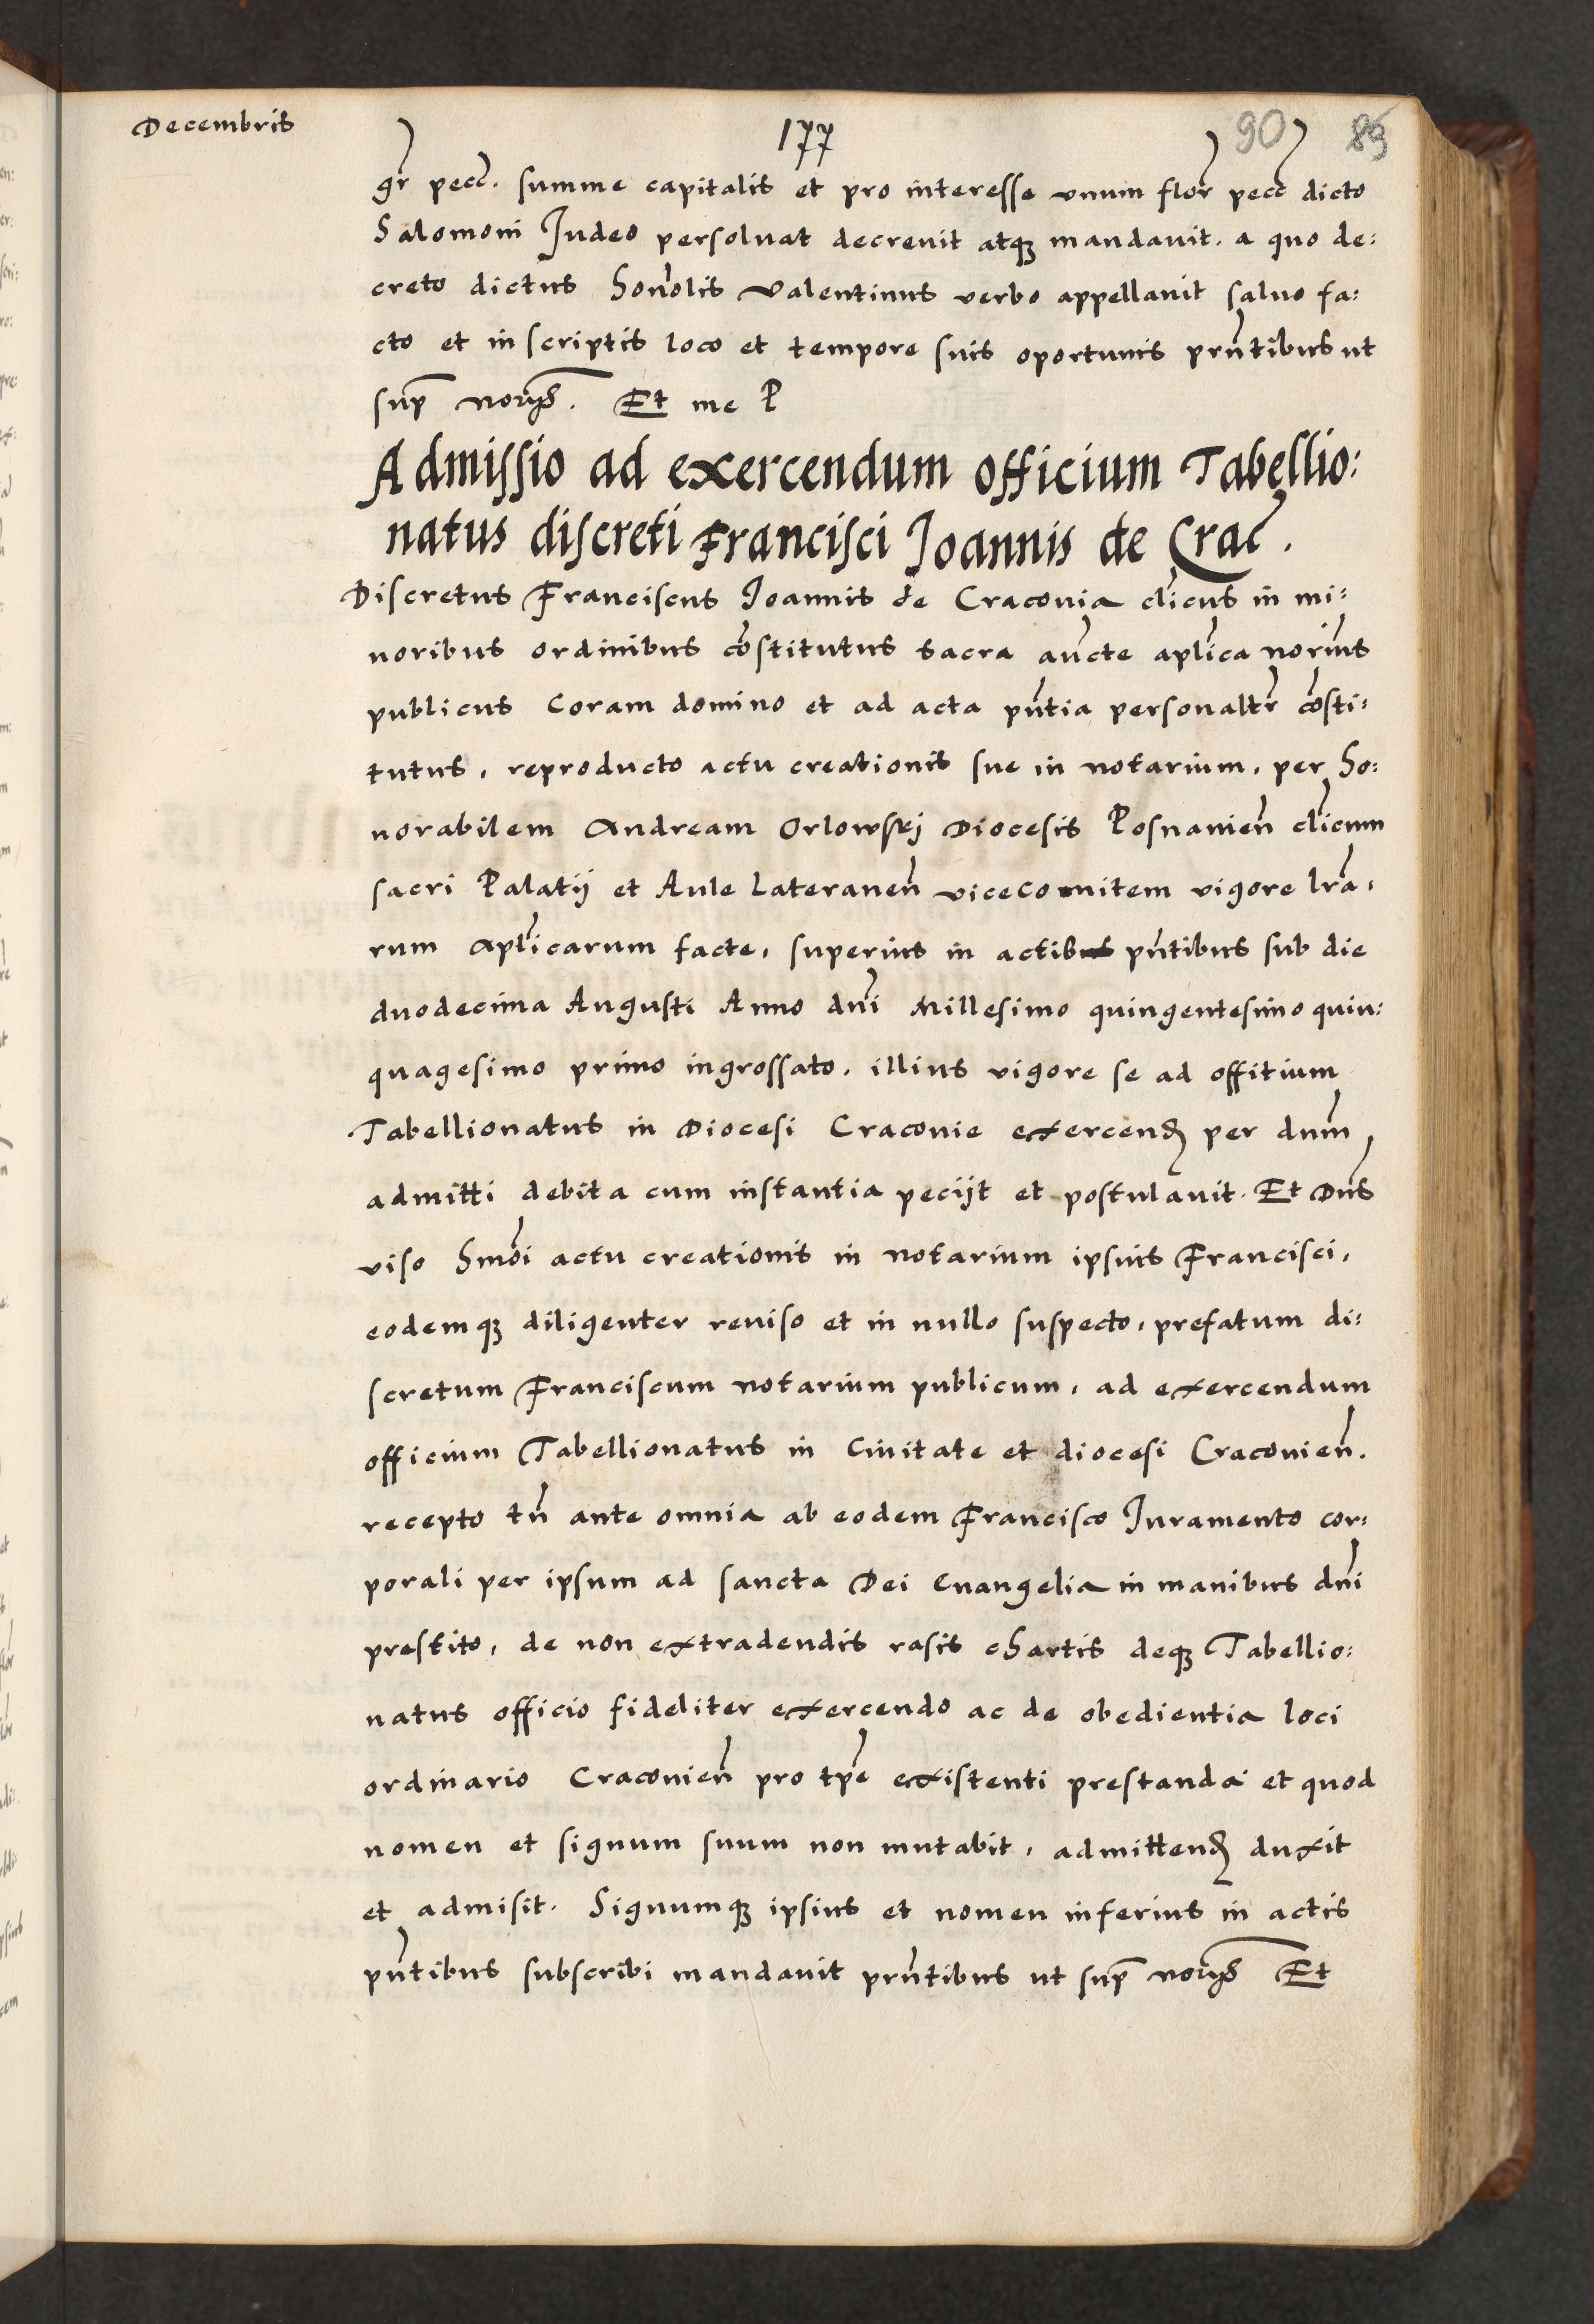 Decembris
177
90 89
gr pecc. summe capitalis et pro interesse vnum flor pecc dicto
Salomoni Judeo persoluat decreuit atq3 mandauit. a quo de:
creto dictus honolis Valentinus verbo appellauit saluo fa:
cto et in scriptis loco et tempore suis oportunis pntibus ut
sup norys. Et me P
Admissio ad exercendum officium Tabellio:
natus discreti Francisci Joannis de Crac.
Discretus Franciscus Joannis de Craconia clicus in mi:
noribus ordinibus constitutus sacra aucte aplica norius
publicus Coram domino et ad acta pntia personaltr consti:
tutus, reproducto actu creationis sue in notarium, per ho:
norabilem Andream Orlowskj Diocesis Posnanien clicum
sacri Palatij et Aule Lateranen vicecomitem vigore lra,
rum aplicarum facte, superius in actibus pntibus sub die
duodecima Augusti Anno dni Millesimo quingentesimo quin:
quagesimo primo ingrossato. illius vigore se ad offitium
Tabellionatus in Diocesi Craconie exercend per dum
admitti debita cum instantia pecijt et postulauit. Et Dns
viso hmoi actu creationis in notarium ipsius Francisci,
eodemq3 diligenter reuiso et in nullo suspecto, prefatum di:
scretum Franciscum notarium publicum, ad exercendum
officium Tabellionatus in Ciuitate et diocesi Craconien.
recepto tn ante omnia ab eodem Francisco Juramento cor:
porali per ipsum ad sancta Dei Euangelia in manibus dni
prestito, de non extradendis rasis chartis deq3 Tabellio:
natus officio fideliter exercendo ac de obedientia loci
ordinario Craconien pro tpe existenti prestanda et quod
nomen et signum suum non mutabit, admittend duxit
et admisit. Signumq3 ipsius et nomen inferius in actis
pntibus subscribi mandauit pntibus ut sup norys Et